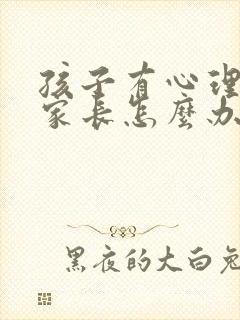 孩子有心理
家长怎麼办
黑夜的大白兔